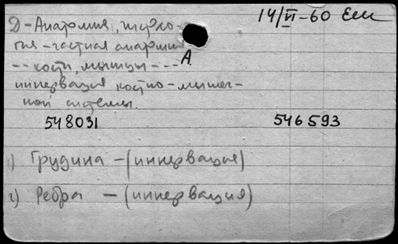 Д – Анатомия, 14/VI – 60
– частная анатомия
-- кости, мышцы --- А
иннервация костно-мышеч-
ной системы.
548031 546593
1) Грудина – (иннервация)
2) Ребра – (иннервация)